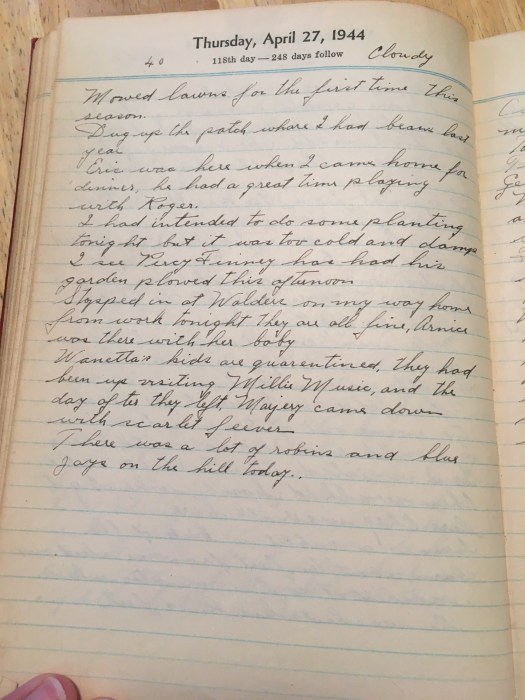 Thursday, April 27, 1944
40 118th day — 248 days follow Cloudy
Mowed lawns for the first time this
season.
Dug up the patch where I had beans last
year
Eric was here when I came home for
dinner, he had a great time playing
with Roger.
I had intended to do some planting
tonight but it was too cold and damp
I see Percy Finney has had his
garden plowed this afternoon
Stopped in at Walders on my way home
from work tonight they are all fine, Arnice
was there with her baby
Wanetta's kids are quarentined, they had
been up visiting Millie Music, and the
day after they left, Marjery came down
with scarlet feever
There was a lot of robins and blue
jays on the hill today..